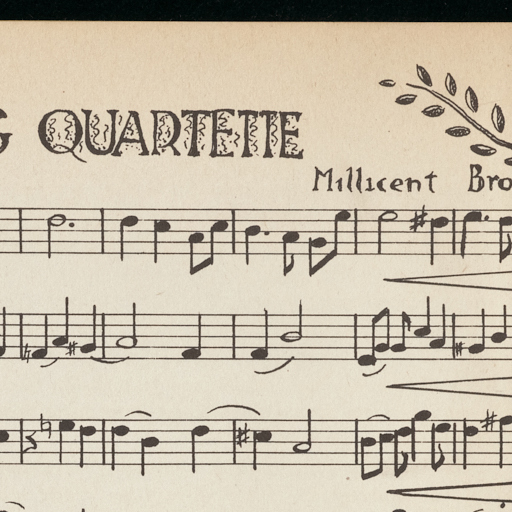 G QUARTETTE
Millicent Bro